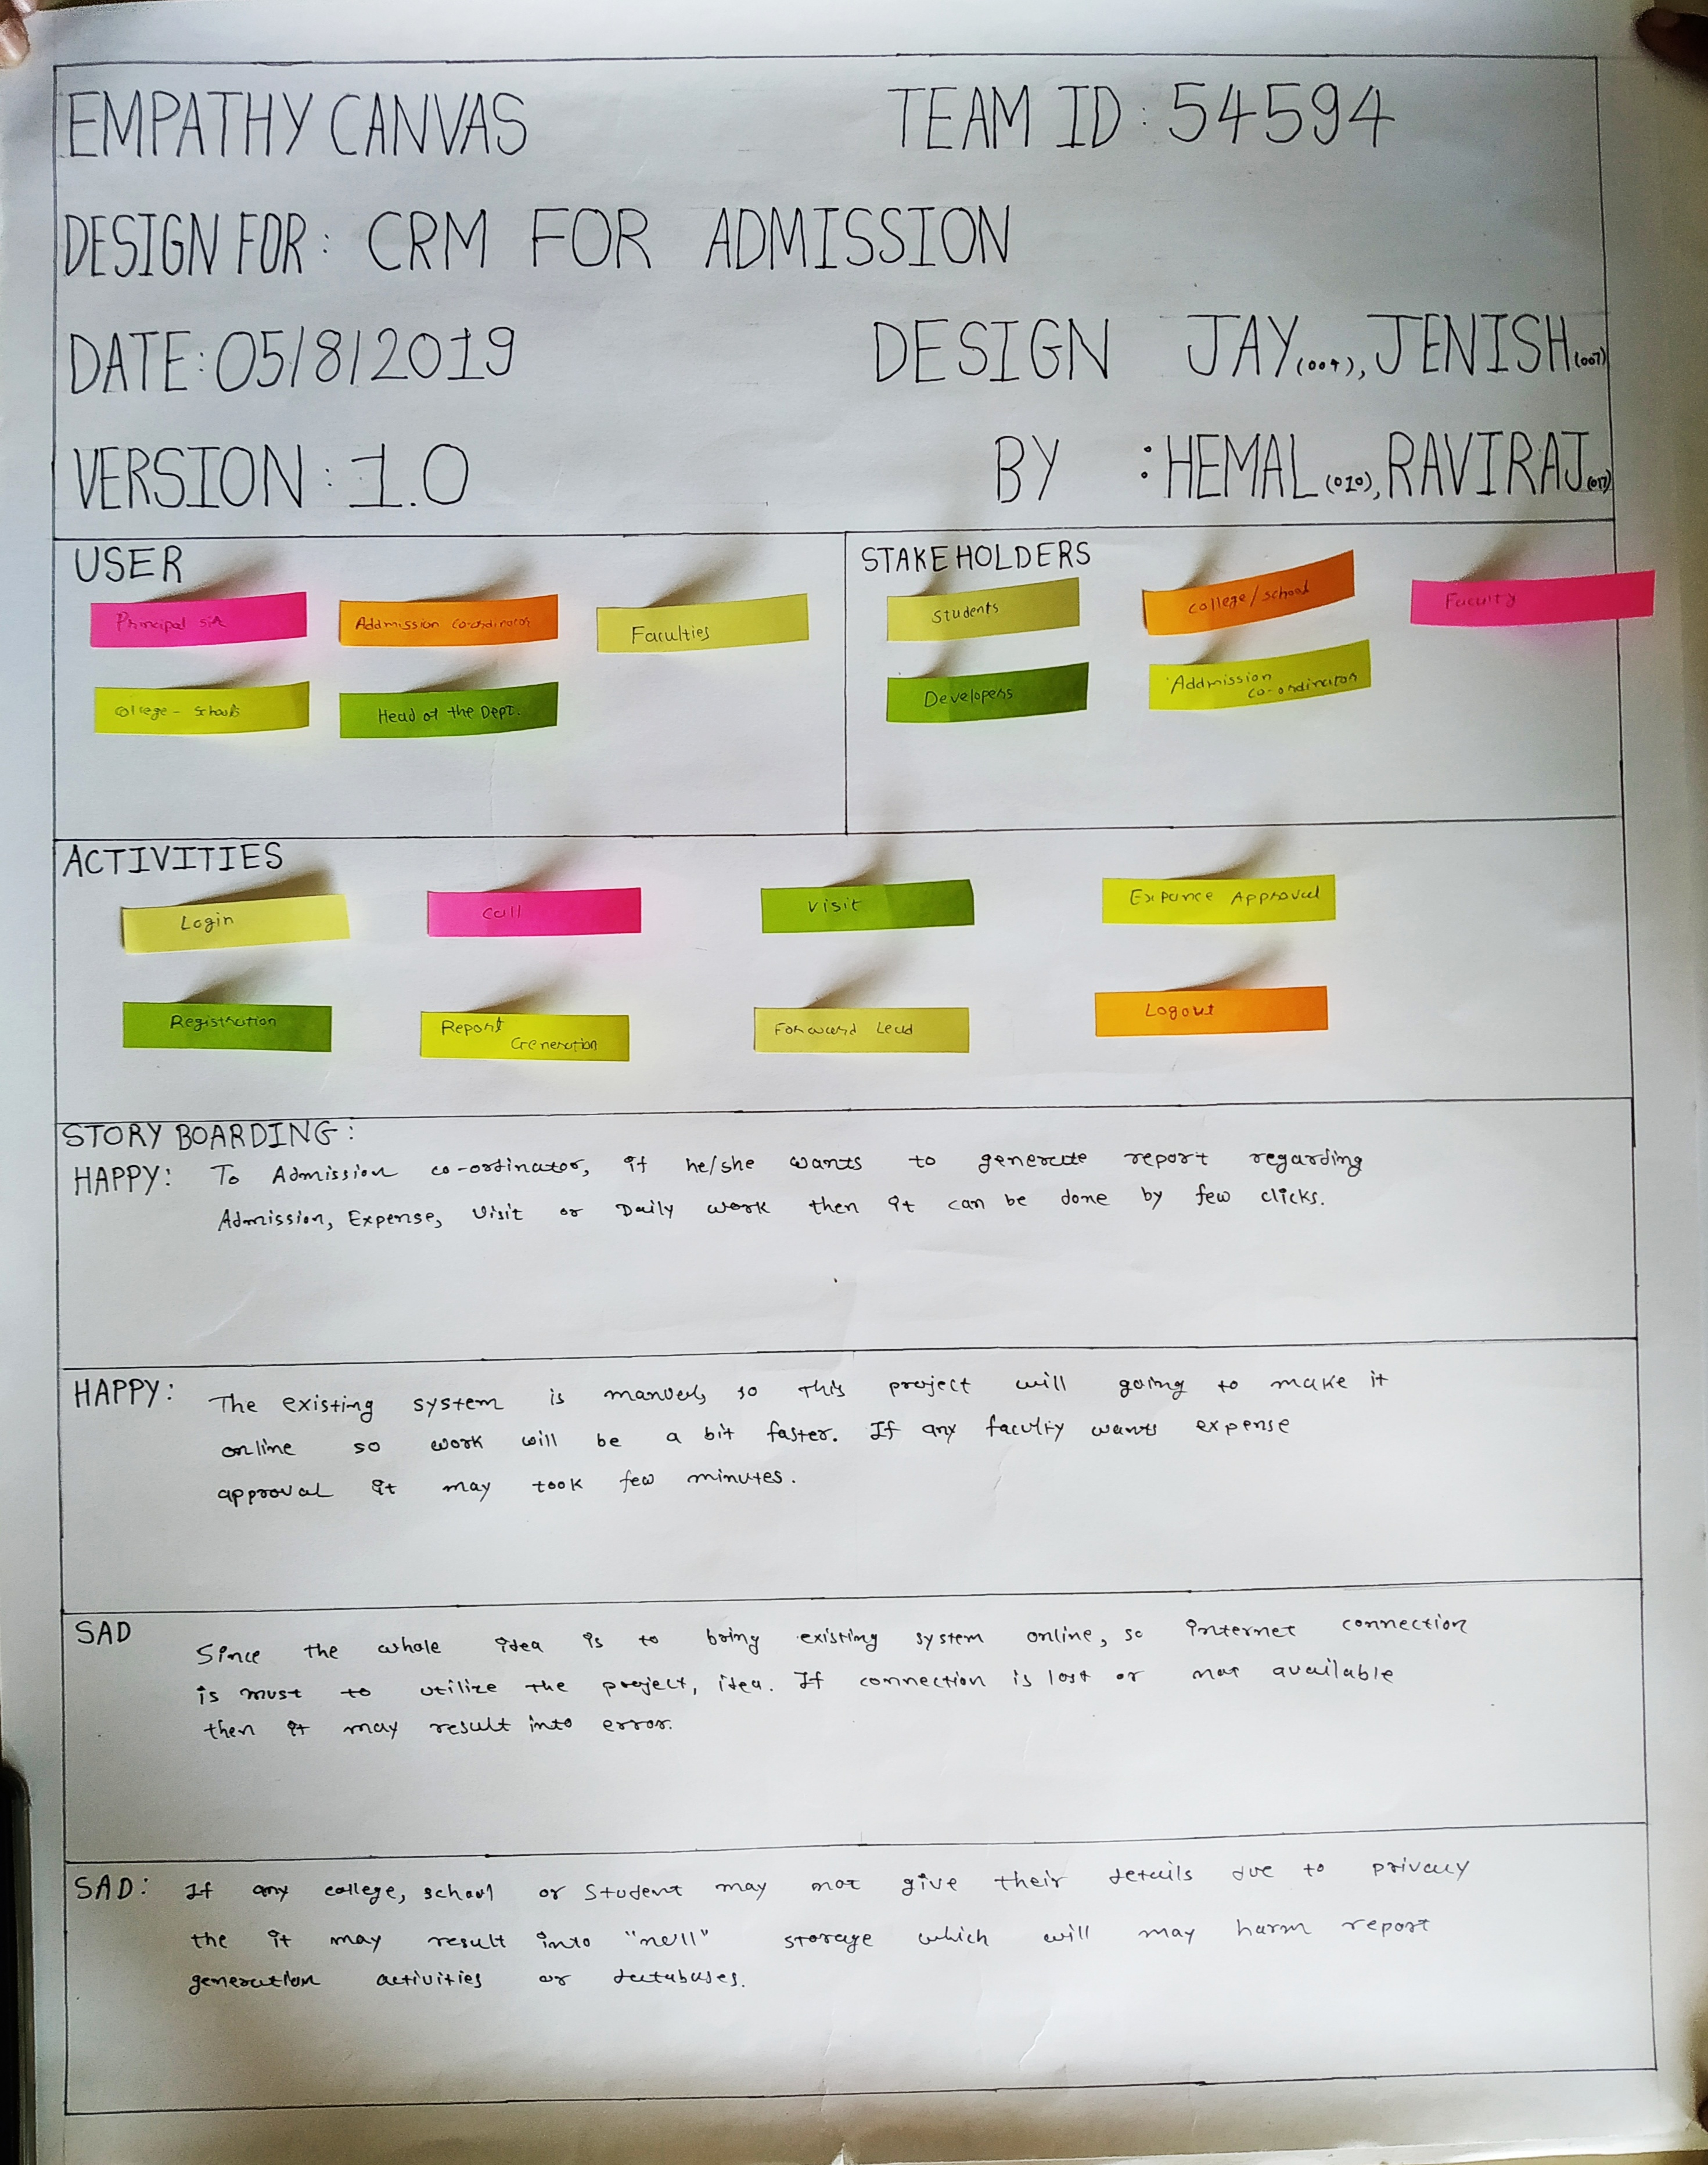 EMPATHY CANVAS TEAM ID: 54594
DESIGN FOR: CRM FOR ADMISSION
DATE: 05/8/2019 DESIGN JAY(004), JENISH(007)
VERSION: 1.0 BY : HEMAL(010), RAVIRAJ(017)
USER
Principal sir Addmission co-ordinator Faculties
College - Schools Head of the Dept.
STAKEHOLDERS
Students College/school Faculty
Developers Addmission
co-ordinator
ACTIVITIES
Login Call Visit Expance Approval
Registration Report
Generation Forward Lead Logout
STORY BOARDING:
HAPPY: To Admission co-ordinator, if he/she wants to generate report regarding
Admission, Expense, Visit or Daily work then it can be done by few clicks.
HAPPY: The existing system is manual, so this project will going to make it
online so work will be a bit faster. If any faculty wants expense
approval it may took few minutes.
SAD Since the whole idea is to bring existing system online, so internet connection
is must to utilize the project, idea. If connection is lost or not available
then it may result into error.
SAD: If any college, school or Student may not give their details due to privacy
the it may result into "null" storage which will may harm report
generation activities or databases.